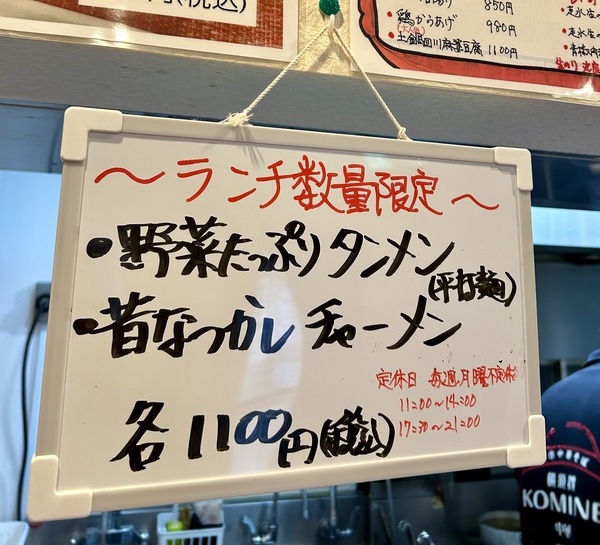 850円
・鶏からあげ 980円
・土鍋四川麻婆豆腐 1100円
〜ランチ数量限定〜
・野菜たっぷりタンメン
(平打麺)
・昔なつかしチャーメン
定休日 毎週月曜不定休
11:00〜14:00
17:30〜21:00
各1100円(税込)
KOMINE